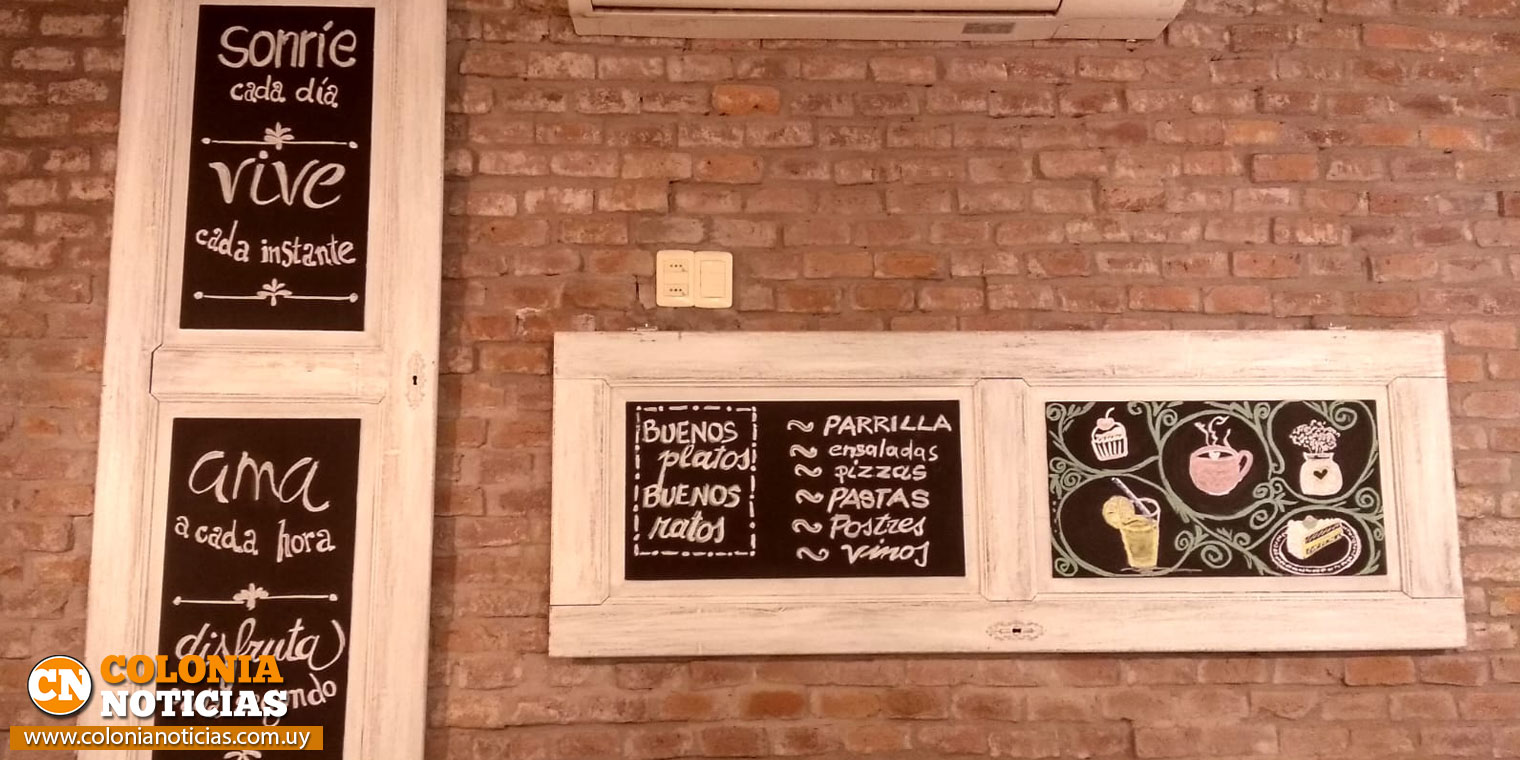 sonríe
cada día
vive
cada instante
ama
a cada hora
disfruta
BUENOS
platos
BUENOS
ratos
~ PARRILLA
~ ensaladas
~ pizzas
~ PASTAS
~ Postres
~ vinos
CN COLONIA
NOTICIAS
www.colonianoticias.com.uy